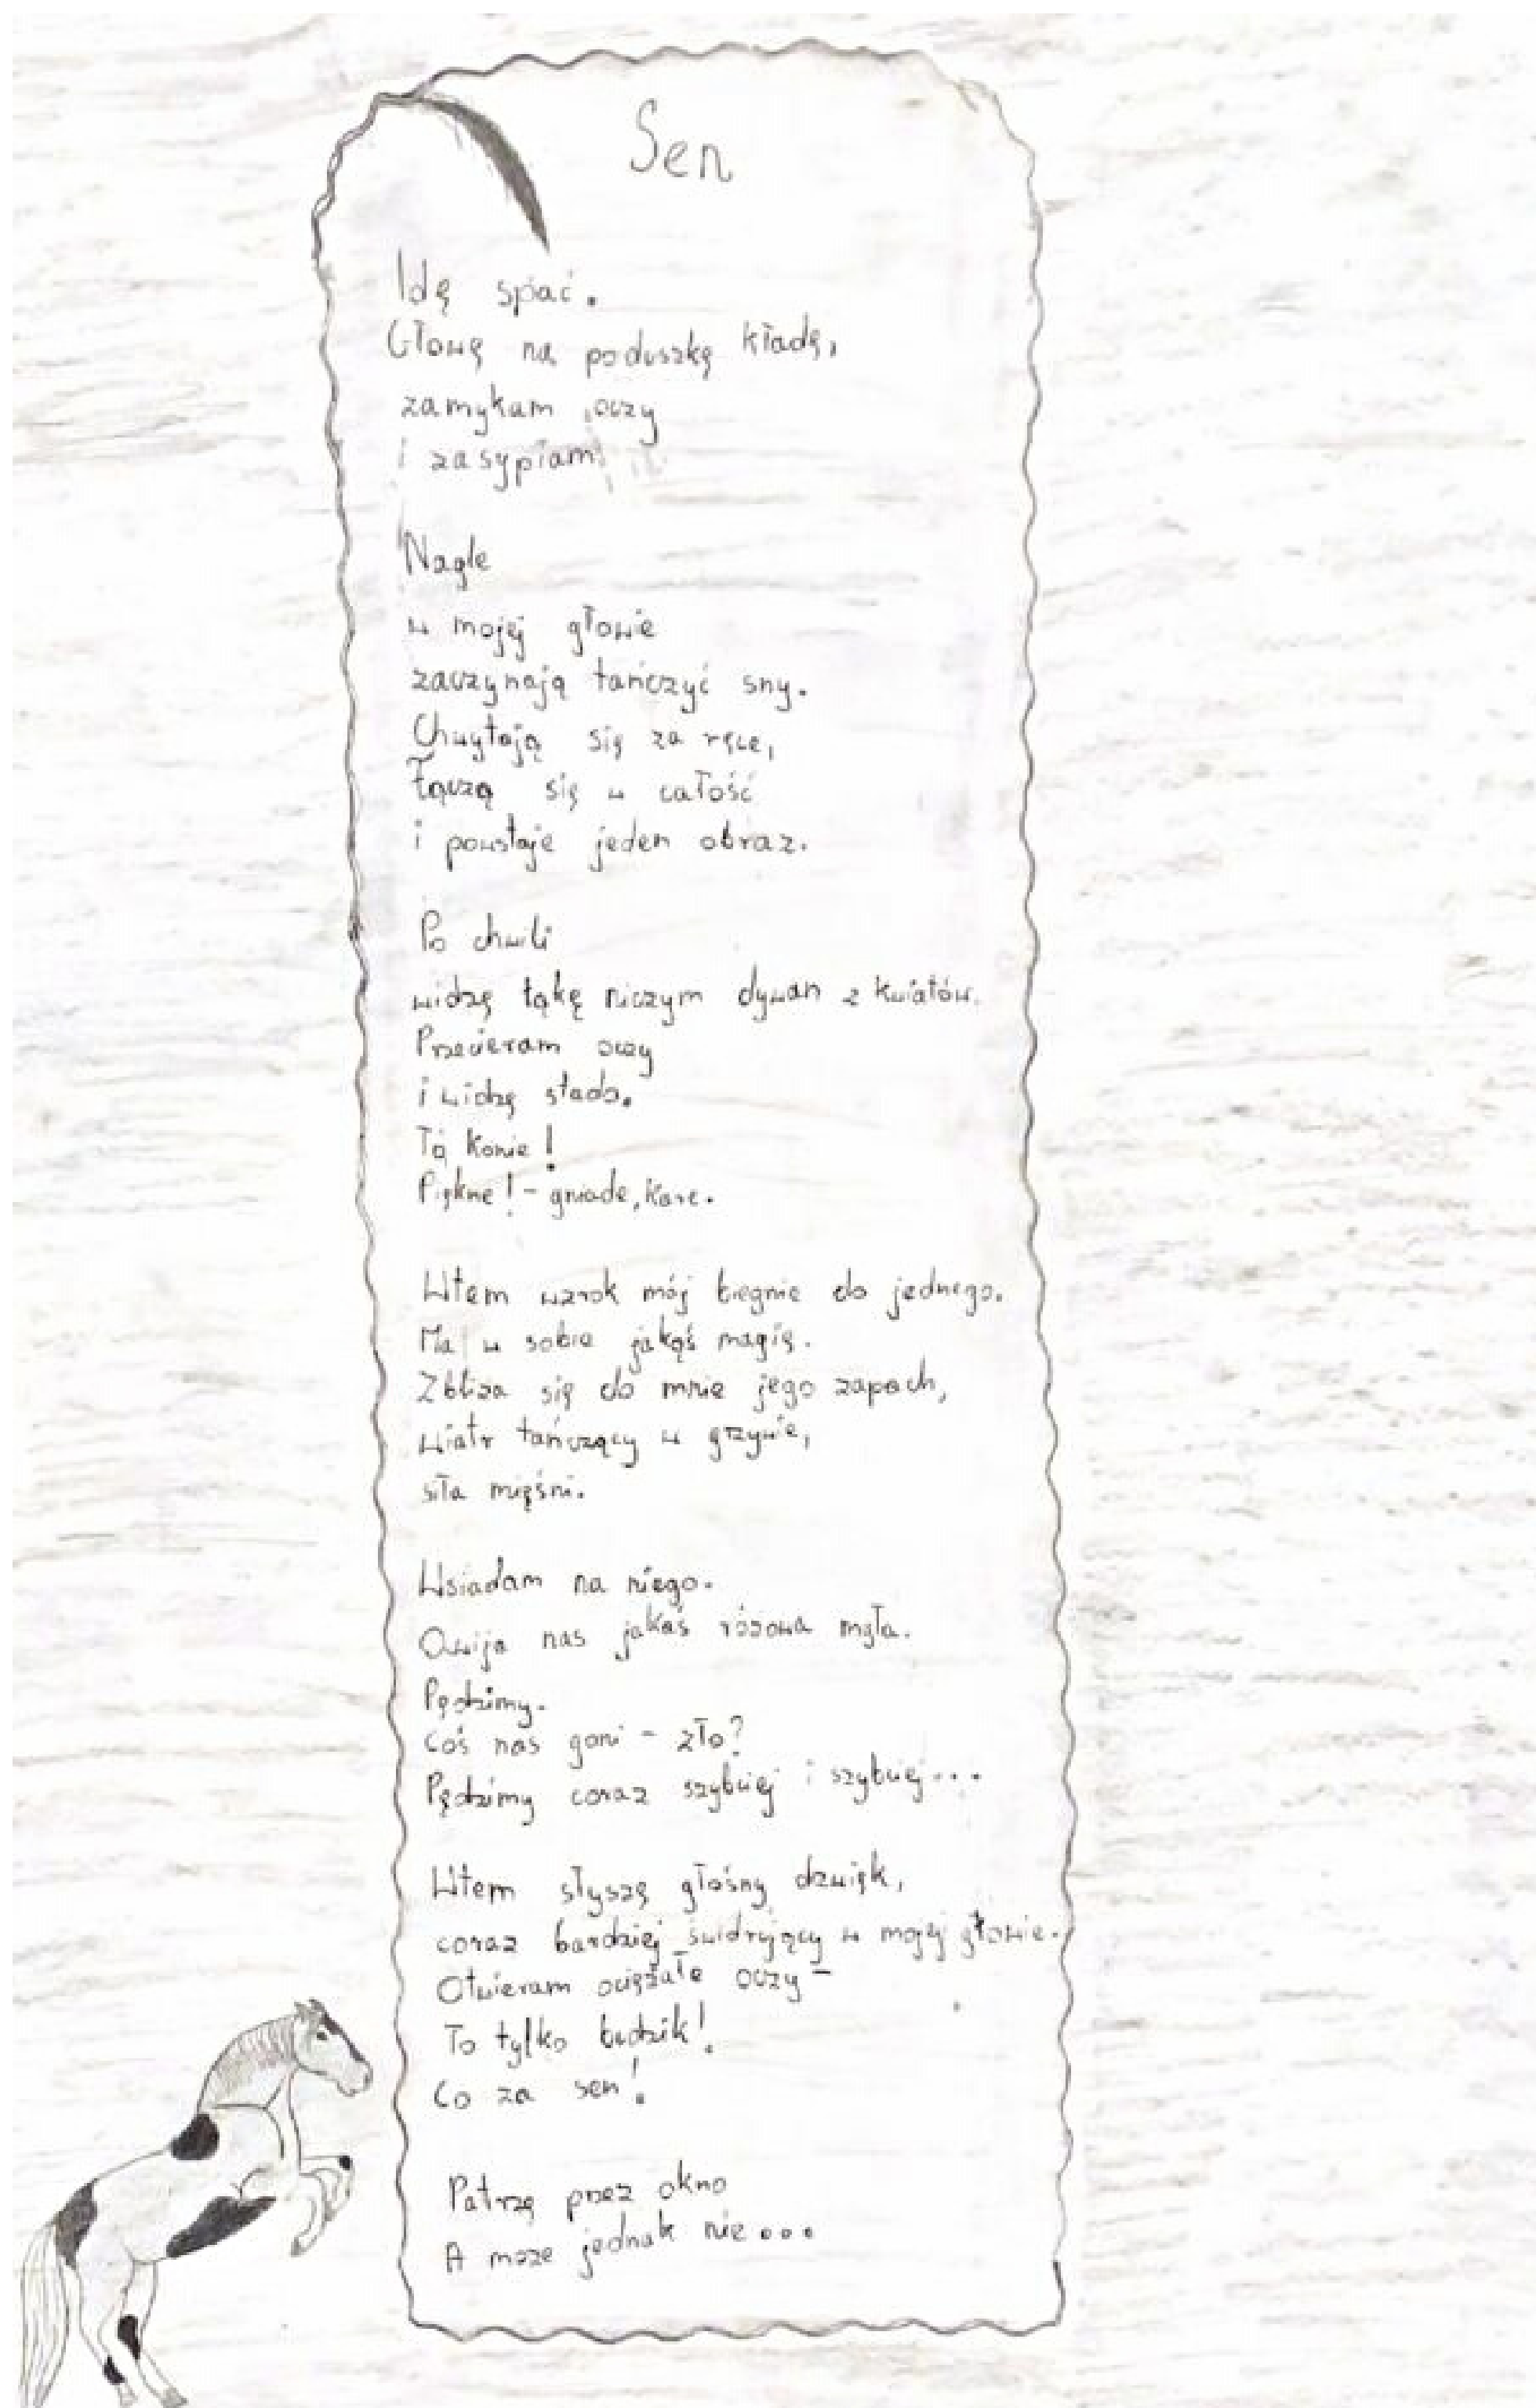 Sen
Idę spać.
Głowę na poduszkę kładę,
zamykam oczy
i zasypiam
Nagle
w mojej głowie
zaczynają tańczyć sny.
Chwytają się za ręce,
łączą się w całość
i powstaje jeden obraz.
Po chwili
widzę łąkę niczym dywan z kwiatów.
Przecieram oczy
i widzę stado.
To konie!
Piękne! - gniade, kare.
Wtem wzrok mój biegnie do jednego.
Ma w sobie jakąś magię.
Zbliża się do mnie jego zapach,
wiatr tańczący w grzywie,
siła mięśni.
Wsiadam na niego.
Owija nas jakaś różowa mgła.
Pędzimy.
Coś nas goni - zło?
Pędzimy coraz szybciej i szybciej...
Wtem słyszę głośny dzwięk,
coraz bardziej świdrujący w mojej głowie.
Otwieram ociężałe oczy -
To tylko budzik!
Co za sen!
Patrzę przez okno
A może jednak nie...